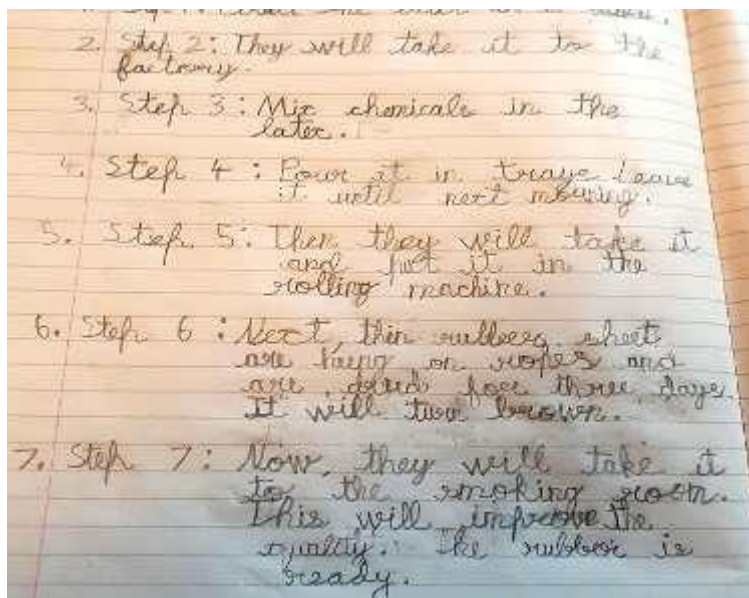 2. Step 2: They will take it to the
factory.
3. Step 3: Mix chemicals in the
latex.
4. Step 4: Pour it in traye leave
it until next morning.
5. Step 5: Then they will take it
and put it in the
rolling machine.
6. Step 6: Next, thin rubber sheet
are hung on ropes and
are dried for three days.
It will turn brown.
7. Step 7: Now, they will take it
to the smoking room.
This will improve the
quality. The rubber is
ready.